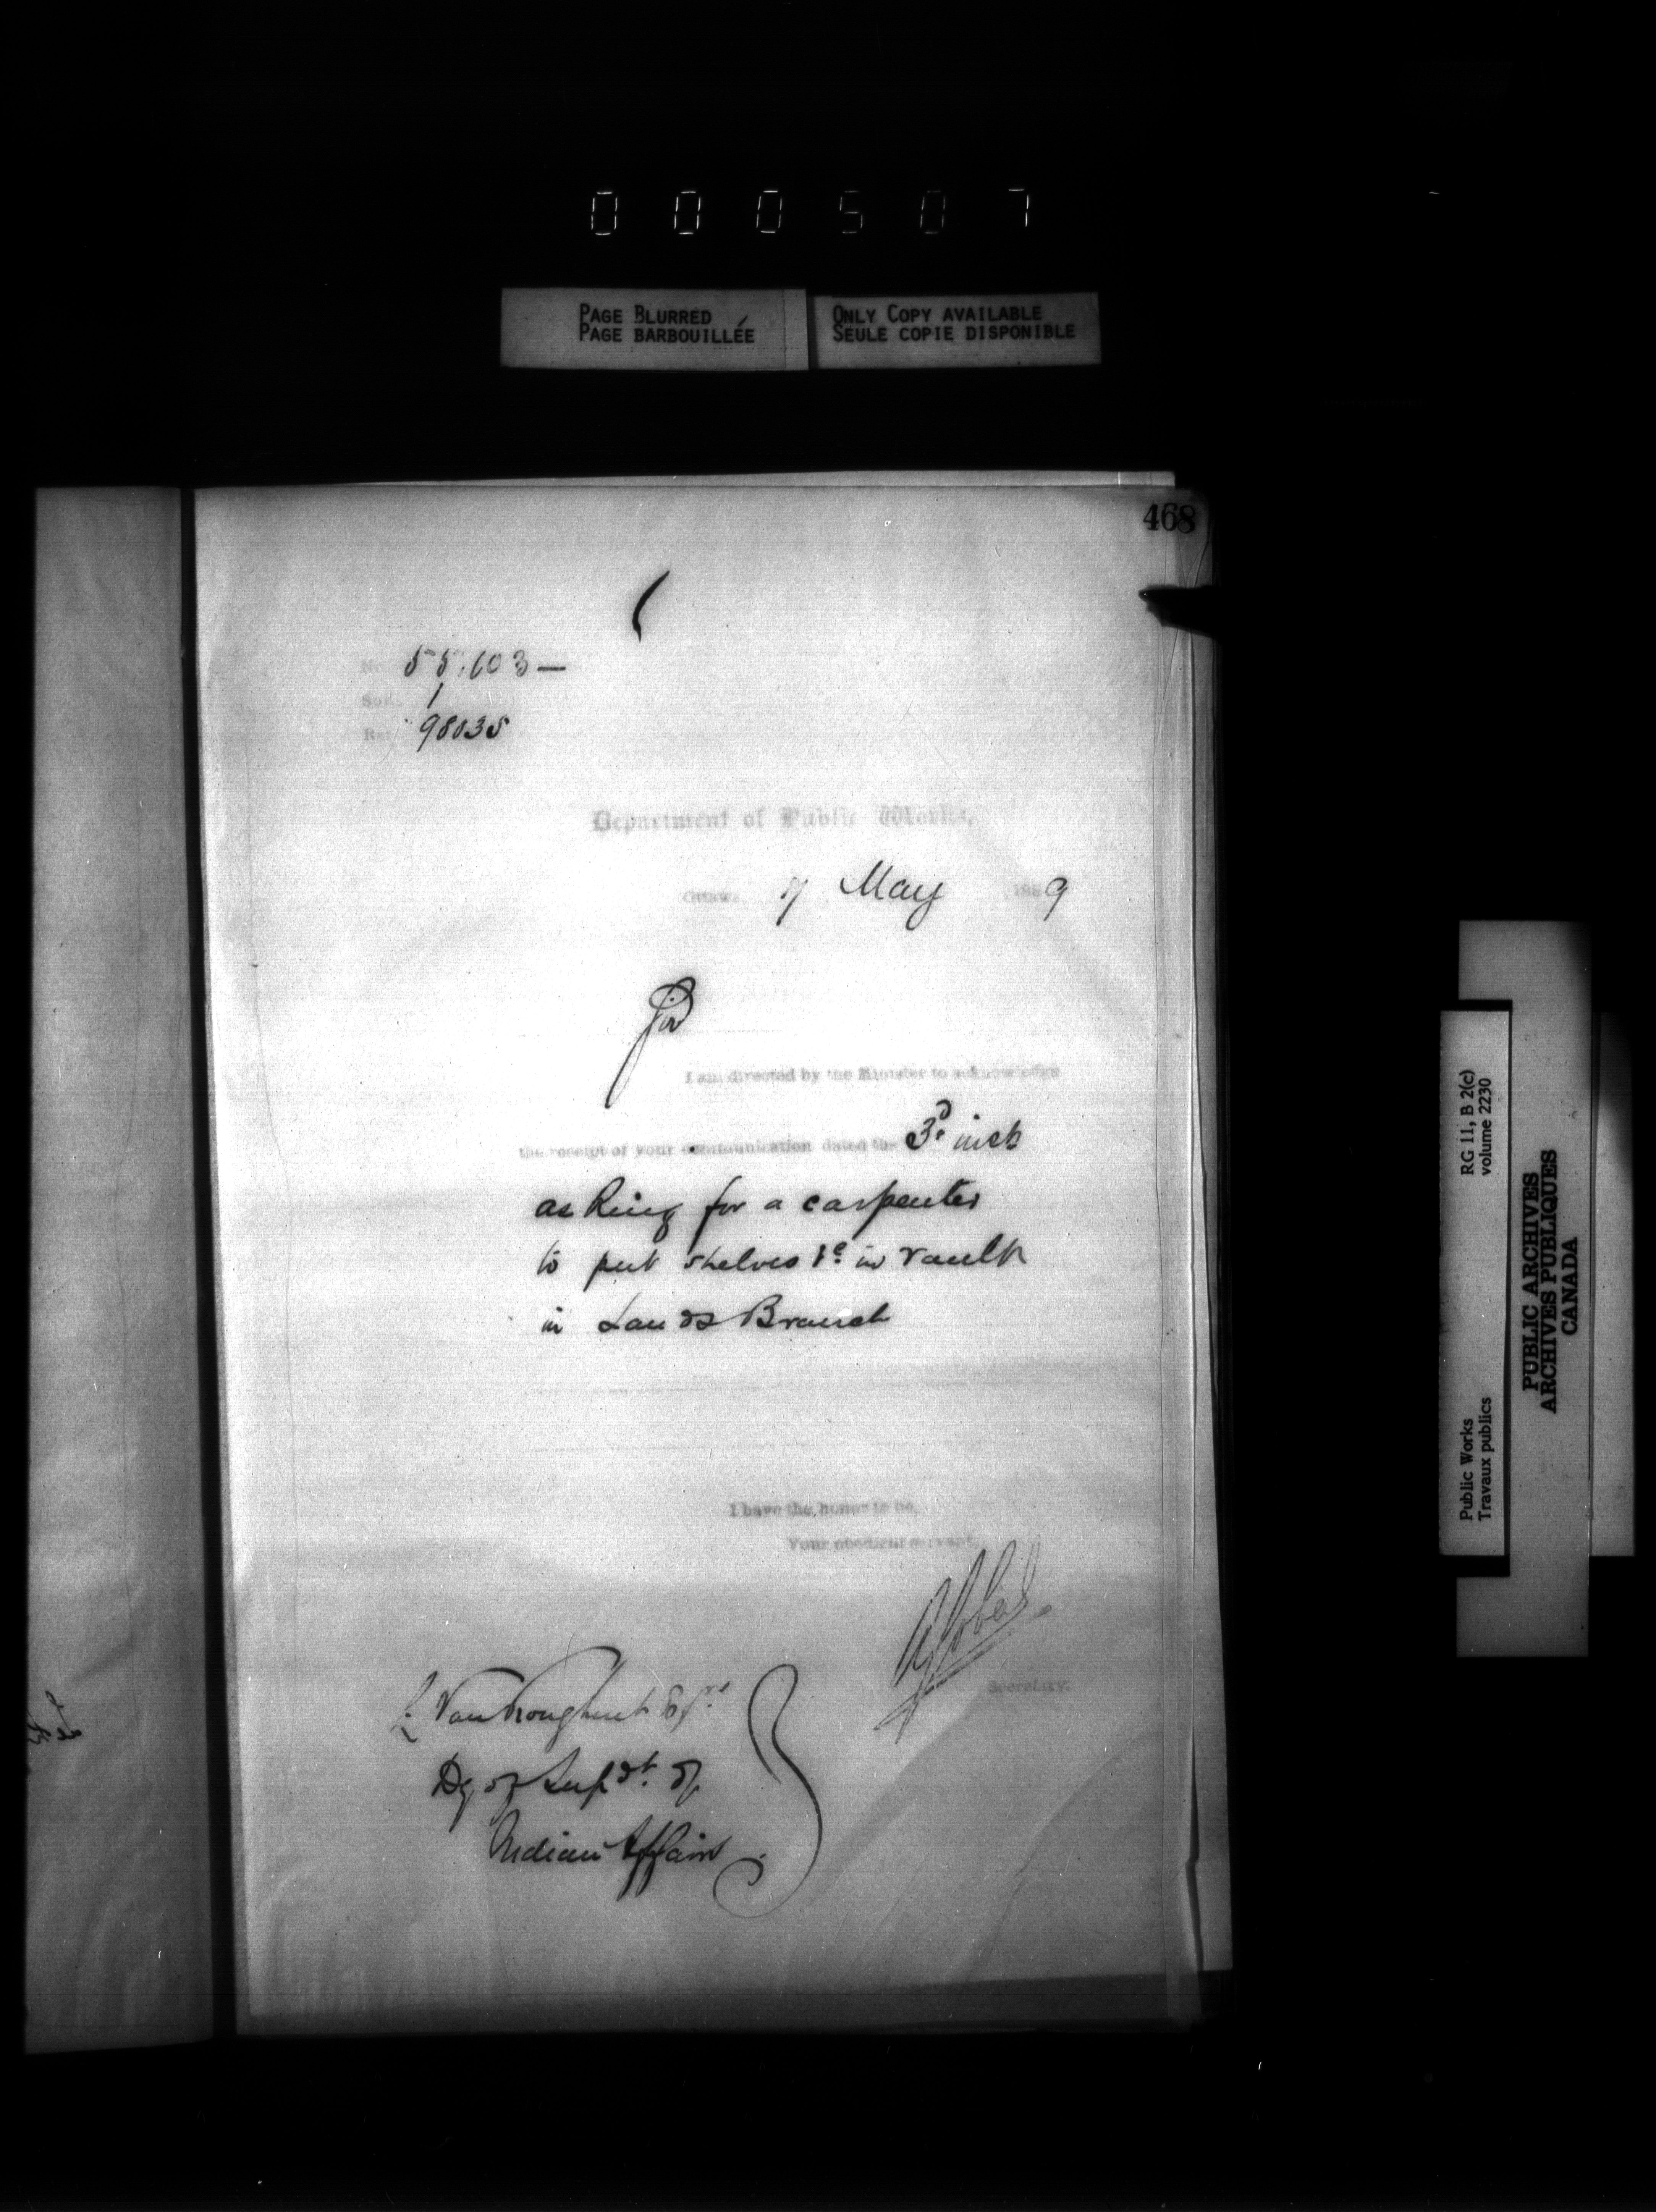 000507
PAGE BLURRED
PAGE BARBOUILLÉE
ONLY COPY AVAILABLE
SEULE COPIE DISPONIBLE
468
No. 55,603 —
Sub. 1
Ref. 98035
Department of Public Works,
Ottawa, 7 May 1889
Sir
I am directed by the Minister to acknowledge
the receipt of your communication dated the 3d inst
asking for a carpenter
to put shelves &c in vault
in Lands Branch
I have the honor to be,
Your obedient servant,
A Gobeil
Secretary.
L. Vankoughnet Esqre
Dy of Supdt of
Indian Affairs
Public Works
Travaux publics
RG 11, B 2(c)
volume 2230
PUBLIC ARCHIVES
ARCHIVES PUBLIQUES
CANADA